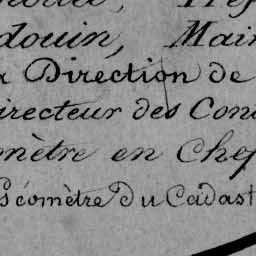 douin, Mai
a Direction de
irecteur des Con
mètre en Chef
Géomètre Du Cadast